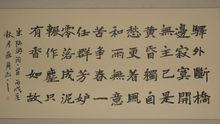 驛外斷橋
邊寂寞開
無主已是
黃昏獨自
愁更著風
和雨無意
苦爭春一
任群芳妒
零落成泥
碾作塵只
有香如故